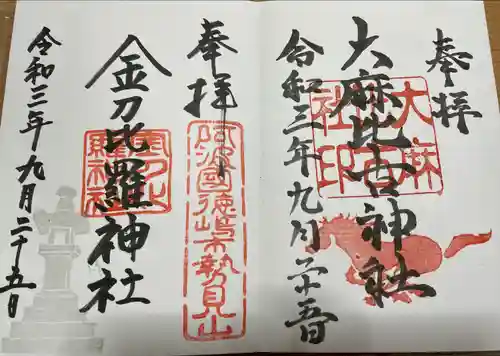 奉拝
大麻比古神社
大麻
社印
令和三年九月廿五日
奉拝
阿波國徳嶋市勢見山
金刀比羅神社
金刀比
羅神社
令和三年九月二十五日